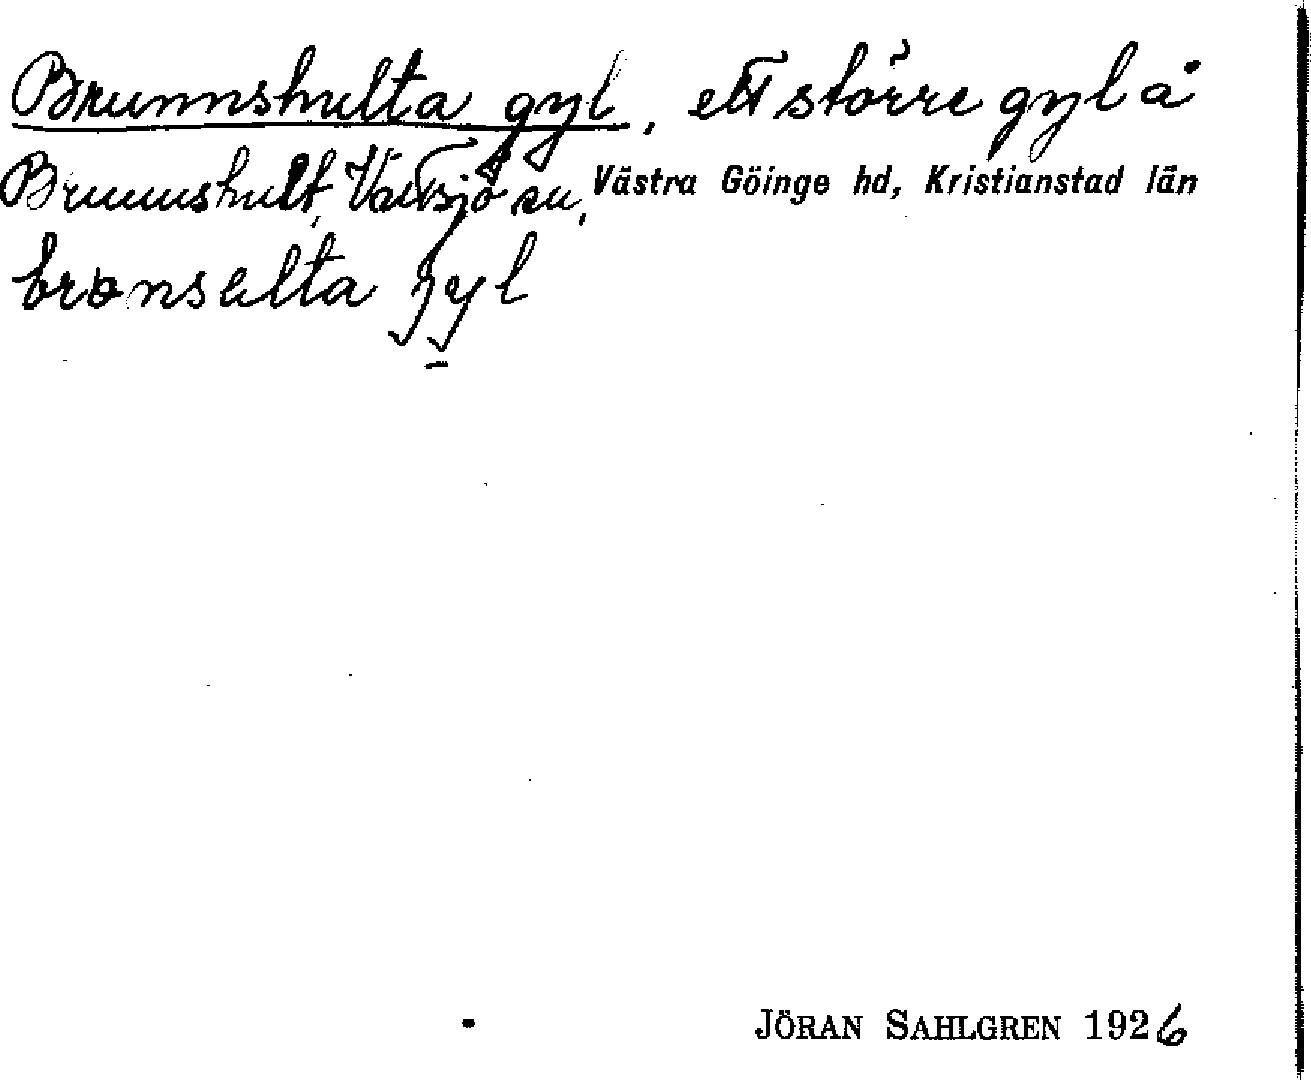 Brunnshulta gyl, ett större gyl å
Brunnshult, Vittsjö sn, Västra Göinge hd, Kristianstad län
gyl
JÖRAN SAHLGREN 1926